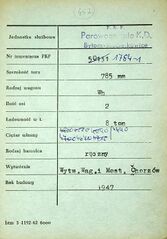 (642)
Jednostka służbowa
P.K.P.
Parowozownia K.D.
Nr inwentarza PKP
1784
Szerokość toru
785 mm
Rodzaj wagonu
Wh
Ilość osi
2
Ładowność w t.
8 ton
Ciężar własny
Rodzaj hamulca
ręczny
Wytwórnia
Wytw. Wag. i Most. Chorzów
Rok budowy
1947